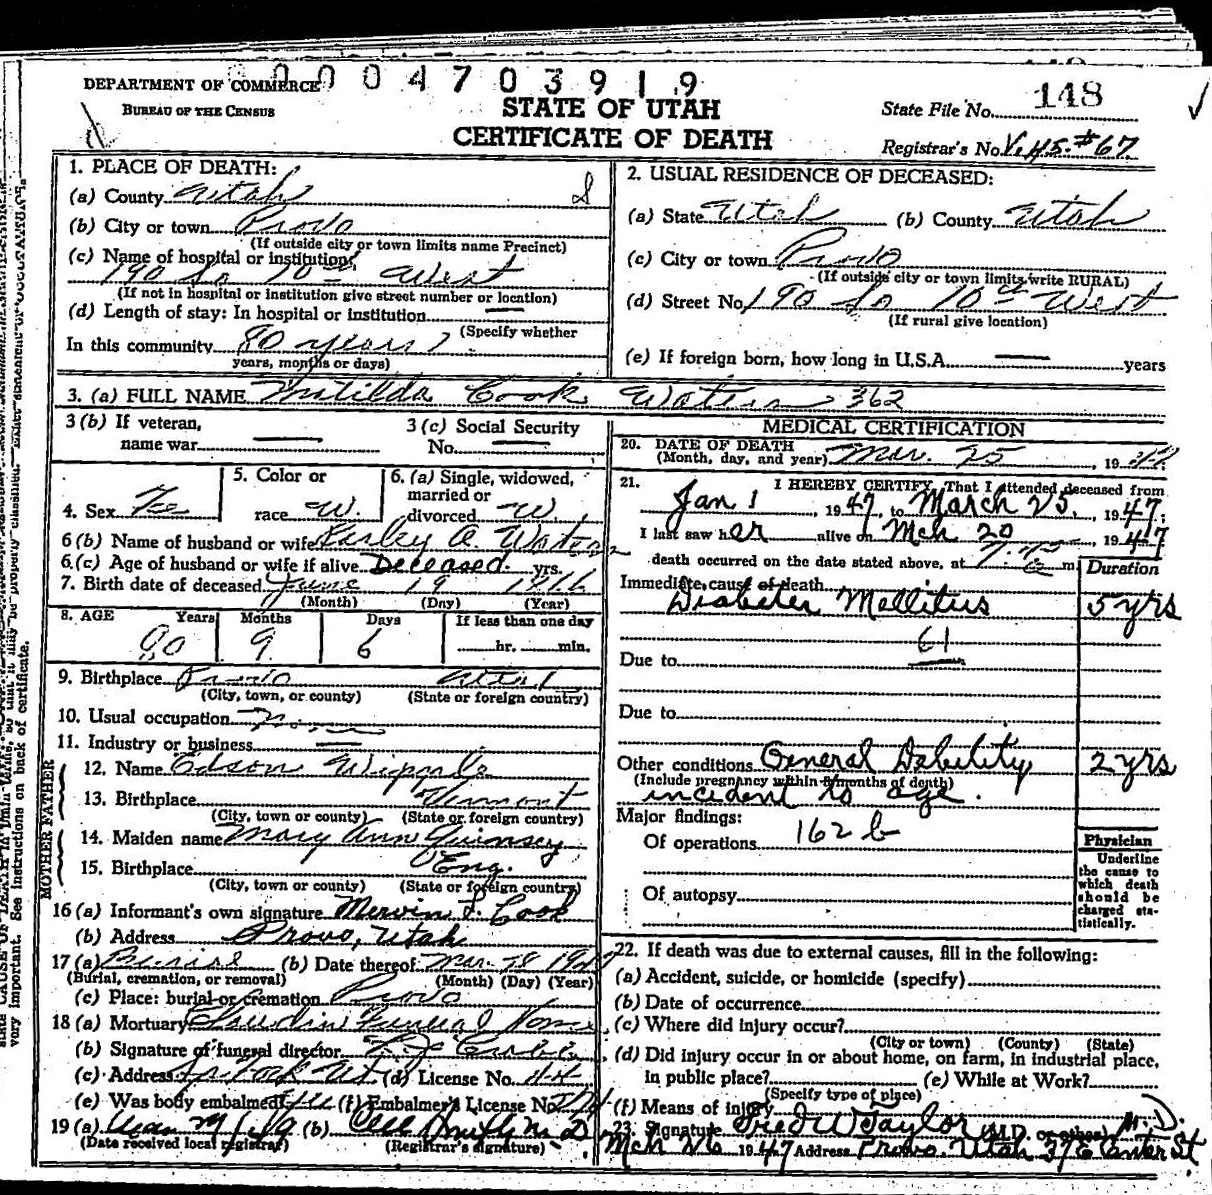 DEPARTMENT OF COMMERCE
BUREAU OF THE CENSUS
0004703919
STATE OF UTAH
CERTIFICATE OF DEATH
State File No. 148
Registrar's No. V.H.S. #67
1. PLACE OF DEATH:
(a) County Utah
(b) City or town Provo
(If outside city or town limits name Precinct)
(c) Name of hospital or institution:
190 So 10th West
(If not in hospital or institution give street number or location)
(d) Length of stay: In hospital or institution
(Specify whether
In this community 80 years
years, months or days)
2. USUAL RESIDENCE OF DECEASED:
(a) State Utah (b) County Utah
(c) City or town Provo
(If outside city or town limits write RURAL)
(d) Street No. 190 So 10th West
(If rural give location)
(e) If foreign born, how long in U.S.A. years
3. (a) FULL NAME Matilda Cook Waters 362
3 (b) If veteran,
name war
3 (c) Social Security
No.
4. Sex Fe
5. Color or
race W.
6. (a) Single, widowed,
married or
divorced W.
6 (b) Name of husband or wife A. Waters
6. (c) Age of husband or wife if alive Deceased yrs.
7. Birth date of deceased June 19 1866
(Month) (Day) (Year)
8. AGE Years Months Days If less than one day
80 9 6 hr. min.
9. Birthplace Provo Utah
(City, town, or county) (State or foreign country)
10. Usual occupation None
11. Industry or business
FATHER
12. Name Edson Wipple
13. Birthplace Vermont
(City, town, or county) (State or foreign country)
MOTHER
14. Maiden name Mary Ann
15. Birthplace Eng.
(City, town or county) (State or foreign country)
16 (a) Informant's own signature Mervin L. Cook
(b) Address Provo, Utah
17 (a) Burial (b) Date thereof Mar. 28 1947
(Burial, cremation, or removal) (Month) (Day) (Year)
(c) Place: burial or cremation Provo
18 (a) Mortuary Claudin Funeral Home
(b) Signature of funeral director
(c) Address (d) License No. 44
(e) Was body embalmed? (f) Embalmer's License No.
19 (a) (b)
(Date received local registrar) (Registrar's signature)
MEDICAL CERTIFICATION
20. DATE OF DEATH
(Month, day, and year) Mar. 25, 19 47
21. I HEREBY CERTIFY, That I attended deceased from
Jan 1, 1947, to March 25, 1947;
I last saw her alive on Mch 20 1947
death occurred on the date stated above, at m.
Duration
Immediate cause of death
Diabetes Mellitus 5 yrs
61
Due to
Due to
Other conditions General Debility 2 yrs
(Include pregnancy within 3 months of death)
incident to age.
Major findings:
Of operations 162 b
Of autopsy
Physician
Underline
the cause to
which death
should be
charged sta-
tistically.
22. If death was due to external causes, fill in the following:
(a) Accident, suicide, or homicide (specify)
(b) Date of occurrence
(c) Where did injury occur?
(City or town) (County) (State)
(d) Did injury occur in or about home, on farm, in industrial place,
in public place? (e) While at Work?
(Specify type of place)
(f) Means of injury
23. Signature Fred W Taylor M.D.
(M.D. or other)
Mch 26 1947 Address Provo, Utah 37 E Center St